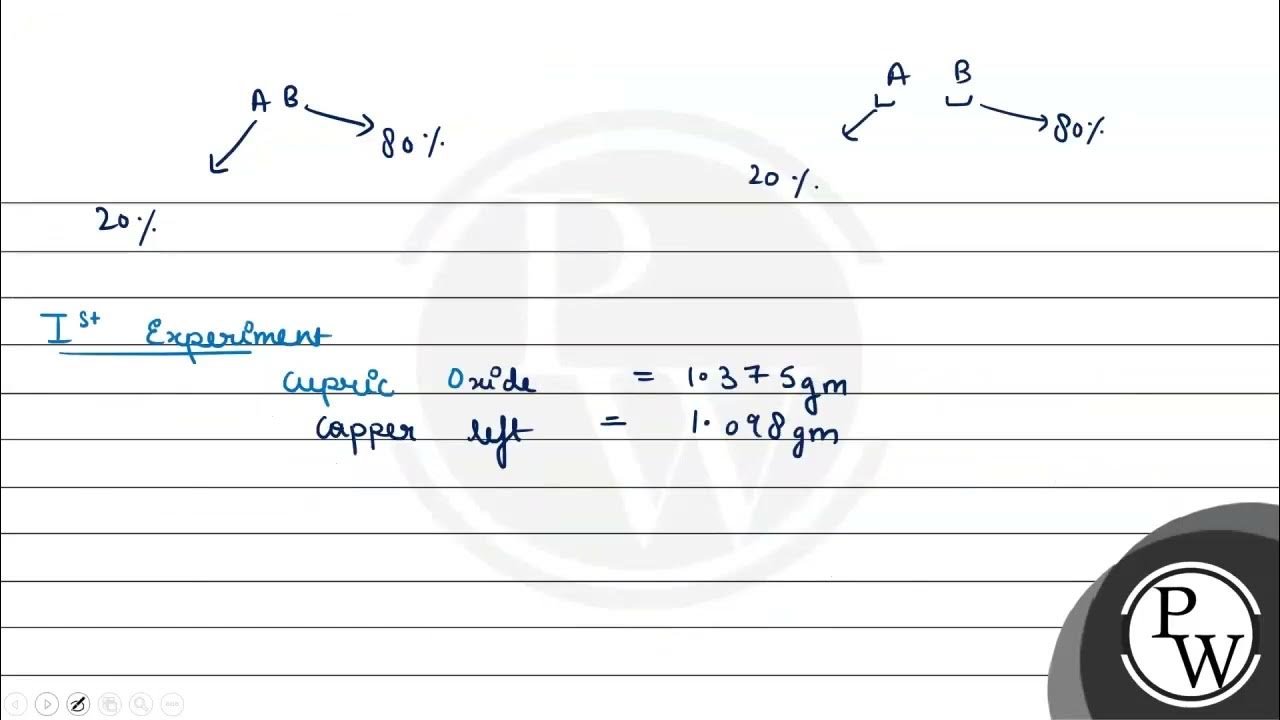 A B
80%
20%
A B
80%
20%
Ist Experiment
cupric Oxide = 1.375gm
copper left = 1.098gm
PW
PW